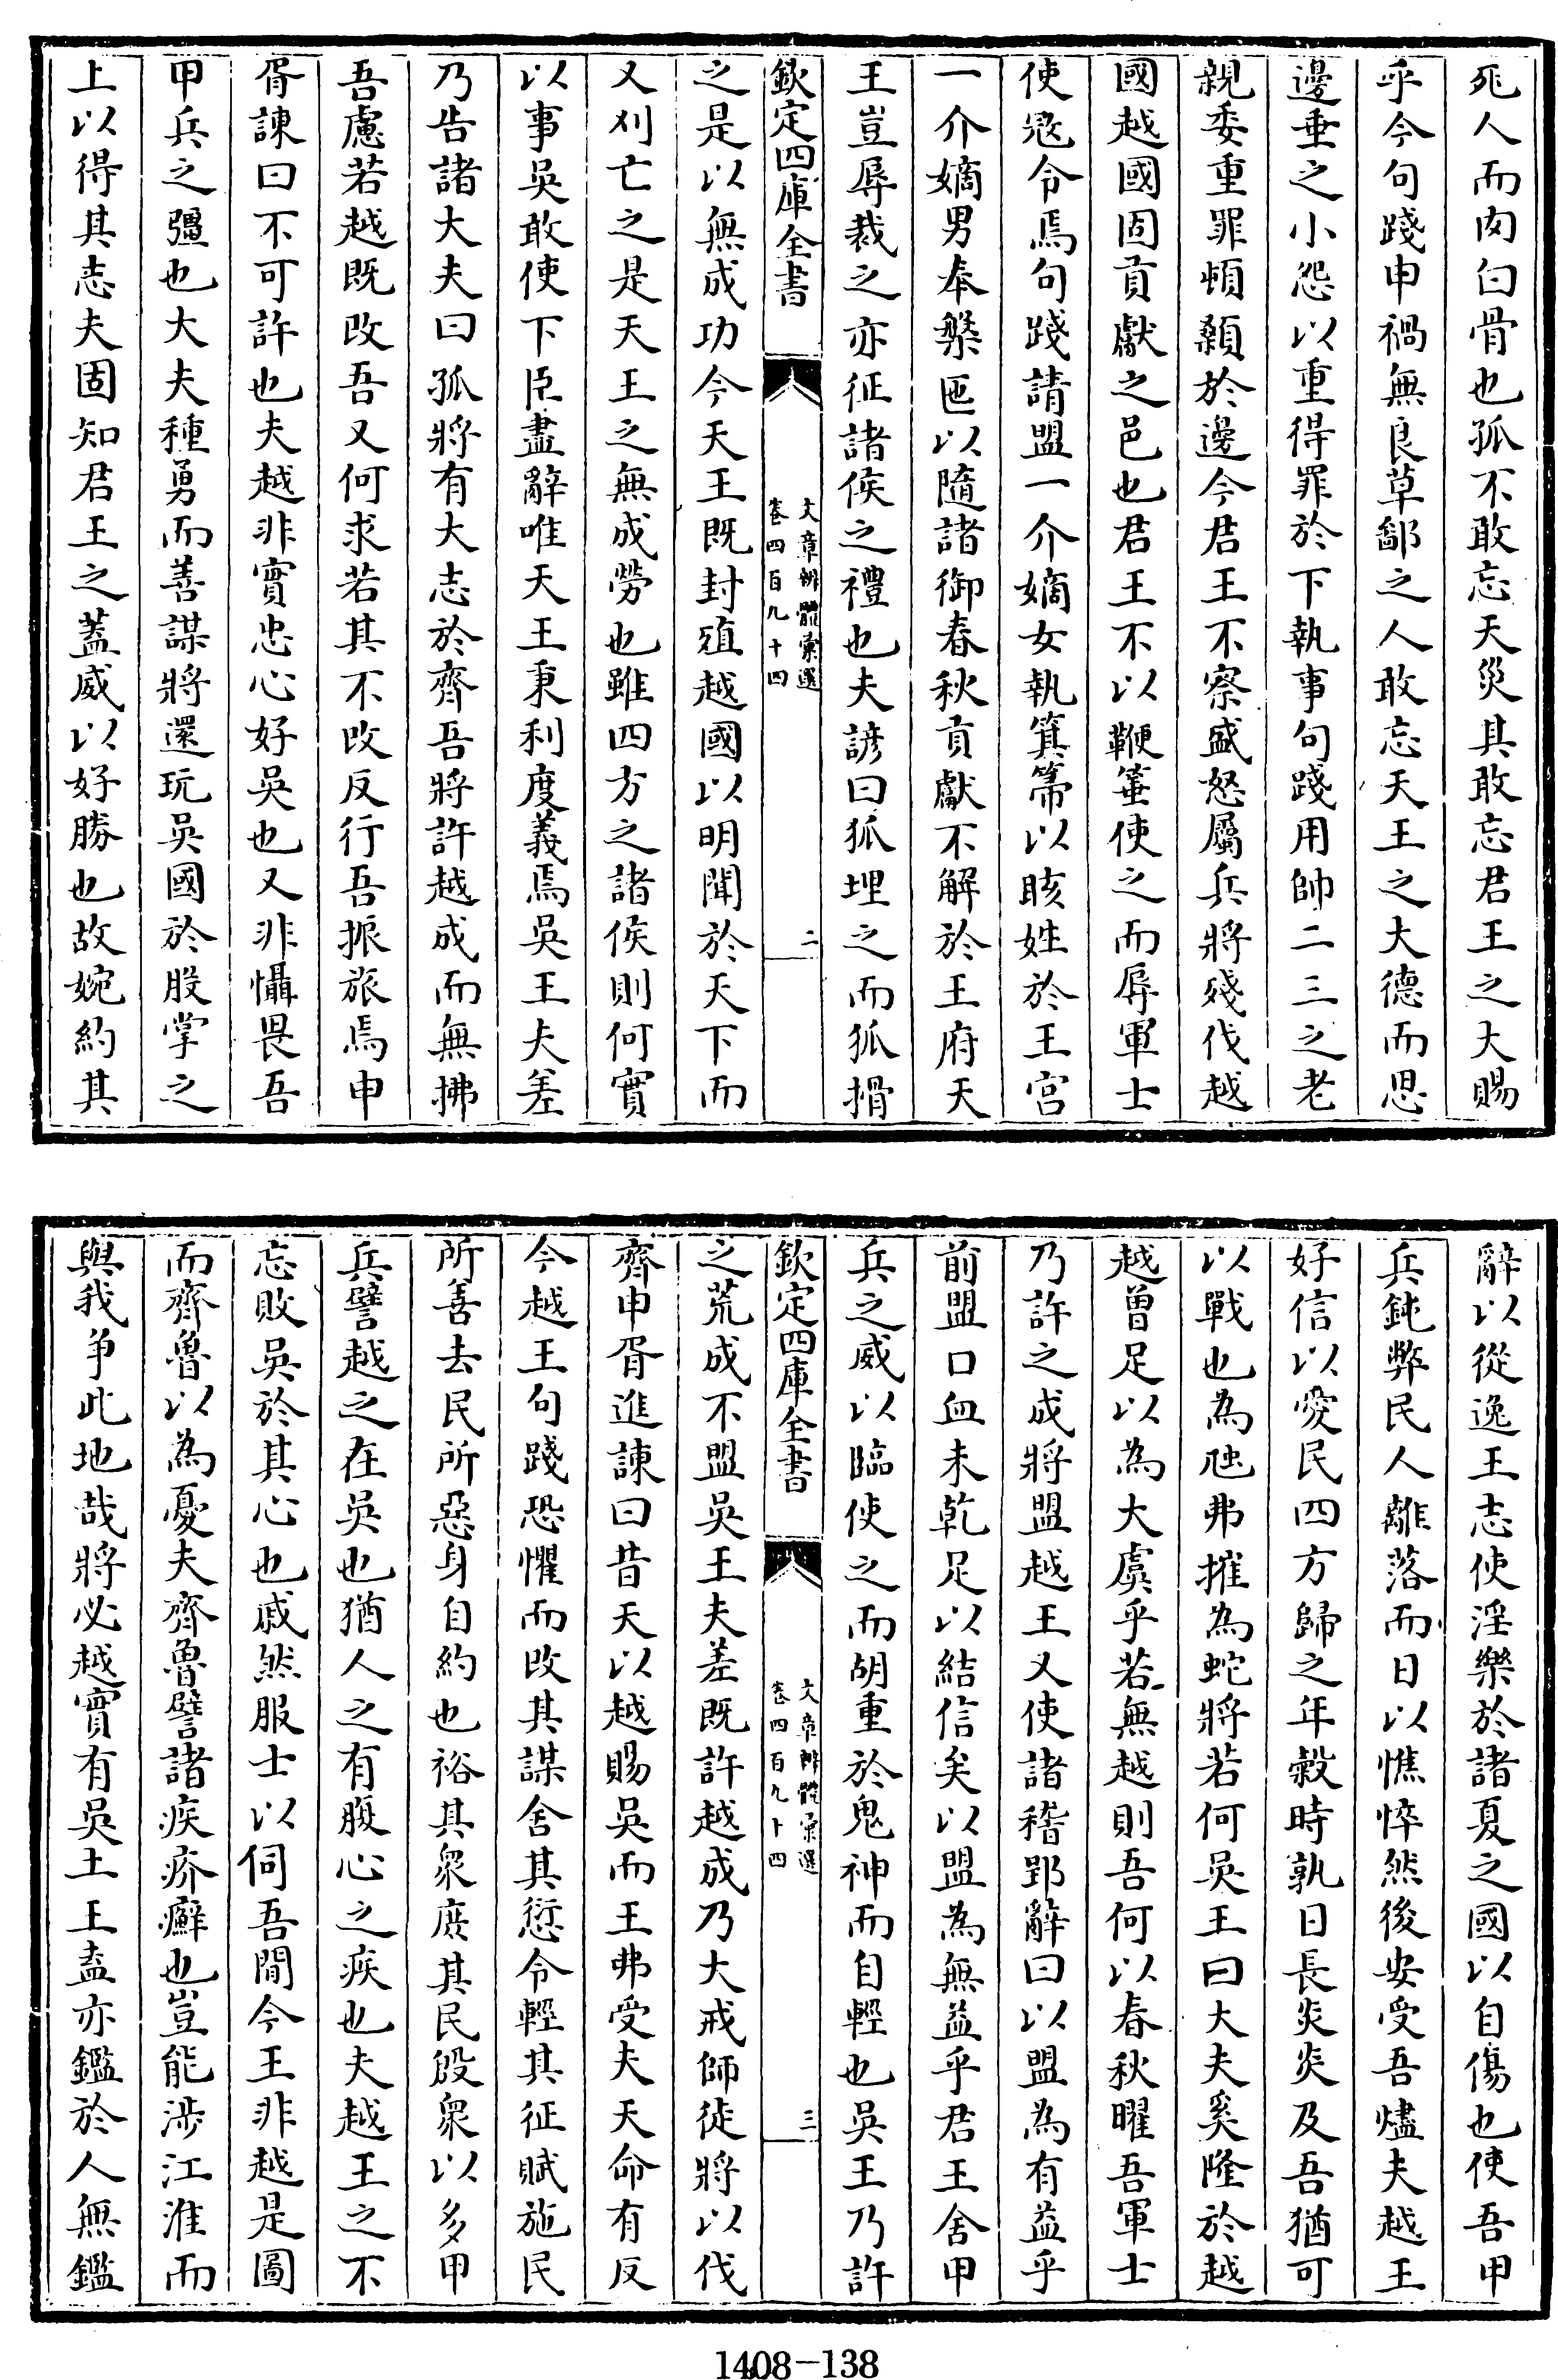 死人而肉白骨也孤不敢忘天災其敢忘君王之大賜
乎今句踐申禍無良草鄙之人敢忘天王之大德而思
邊垂之小怨以重得罪於下執事句踐用帥二三之老
親委重罪頓顙於邊今君王不察盛怒屬兵將殘伐越
國越國固貢獻之邑也君王不以鞭箠使之而辱軍士
使寇令焉句踐請盟一介嫡女執箕箒以晐姓於王宮
一介嫡男奉槃匜以隨諸御春秋貢獻不解於王府天
王豈辱裁之亦征諸侯之禮也夫諺曰狐埋之而狐搰
欽定四庫全書
文章辨體彙選
卷四百九十四
二
之是以無成功今天王既封殖越國以明聞於天下而
又刈亡之是天王之無成勞也雖四方之諸侯則何實
以事吳敢使下臣盡辭唯天王秉利度義焉吳王夫差
乃告諸大夫曰孤將有大志於齊吾將許越成而無拂
吾慮若越既改吾又何求若其不改反行吾振旅焉申
胥諫曰不可許也夫越非實忠心好吳也又非懾畏吾
甲兵之彊也大夫種勇而善謀將還玩吳國於股掌之
上以得其志夫固知君王之蓋威以好勝也故婉約其
辭以從逸王志使淫樂於諸夏之國以自傷也使吾甲
兵鈍弊民人離落而日以憔悴然後安受吾燼夫越王
好信以愛民四方歸之年穀時孰日長炎炎及吾猶可
以戰也為虺弗摧為蛇將若何吳王曰大夫奚隆於越
越曾足以為大虞乎若無越則吾何以春秋曜吾軍士
乃許之成將盟越王又使諸稽郢辭曰以盟為有益乎
前盟口血未乾足以結信矣以盟為無益乎君王舍甲
兵之威以臨使之而胡重於鬼神而自輕也吳王乃許
欽定四庫全書
文章辨體彙選
卷四百九十四
三
之荒成不盟吳王夫差既許越成乃大戒師徒將以伐
齊申胥進諫曰昔天以越賜吳而王弗受夫天命有反
今越王句踐恐懼而改其謀舍其愆令輕其征賦施民
所善去民所惡身自約也裕其衆庶其民殷衆以多甲
兵譬越之在吳也猶人之有腹心之疾也夫越王之不
忘敗吳於其心也戚然服士以伺吾間今王非越是圖
而齊魯以為憂夫齊魯譬諸疾疥癬也豈能涉江淮而
與我爭此地哉將必越實有吳土王盍亦鑑於人無鑑
1408-138